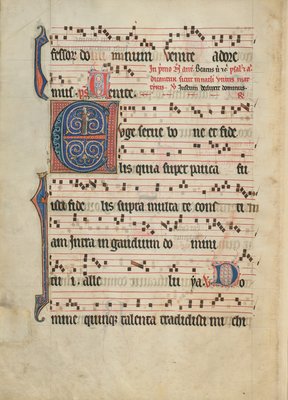 fessor do minum venite adore
dicantur sicut in unius mar
tyris ℣ Iustum deduxit dominus
mus. ps Venite.
Euge serve bo ne et fide
lis quia super pauca fu
isti fide lis supra multa te cons ti
am intra in gaudium do mini
tu i alle lu ya. ℣ Do
mine quinque talenta tradidisti mi chi